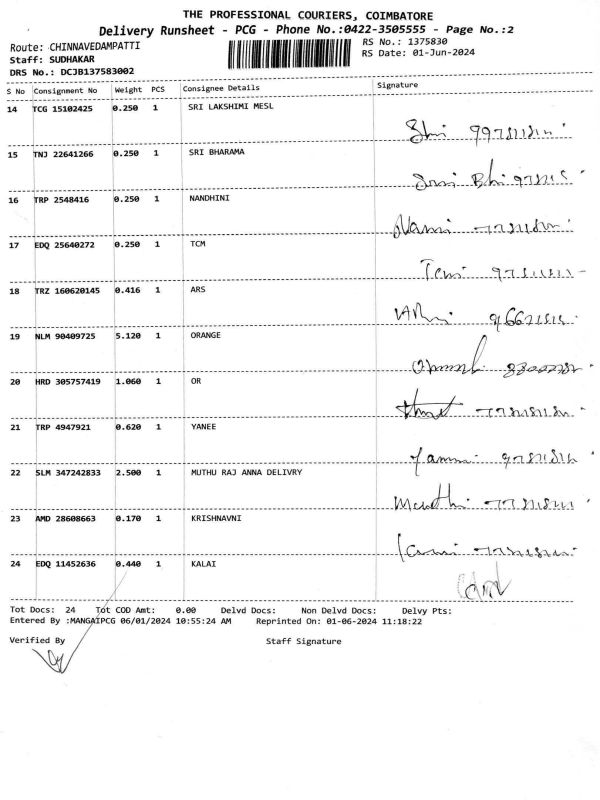 THE PROFESSIONAL COURIERS, COIMBATORE
Delivery Runsheet - PCG - Phone No.:0422-3505555 - Page No.:2
Route: CHINNAVEDAMPATTI RS No.: 1375830
Staff: SUDHAKAR RS Date: 01-Jun-2024
DRS No.: DCJB137583002
S No Consignment No Weight PCS Consignee Details Signature
14 TCG 15102425 0.250 1 SRI LAKSHIMI MESL
15 TNJ 22641266 0.250 1 SRI BHARAMA
16 TRP 2548416 0.250 1 NANDHINI
17 EDQ 25640272 0.250 1 TCM
18 TRZ 160620145 0.416 1 ARS
19 NLM 90409725 5.120 1 ORANGE
20 HRD 305757419 1.060 1 OR
21 TRP 4947921 0.620 1 YANEE
22 SLM 347242833 2.500 1 MUTHU RAJ ANNA DELIVRY
23 AMD 28608663 0.170 1 KRISHNAVNI
24 EDQ 11452636 0.440 1 KALAI
Tot Docs: 24 Tot COD Amt: 0.00 Delvd Docs: Non Delvd Docs: Delvy Pts:
Entered By :MANGAIPCG 06/01/2024 10:55:24 AM Reprinted On: 01-06-2024 11:18:22
Verified By Staff Signature